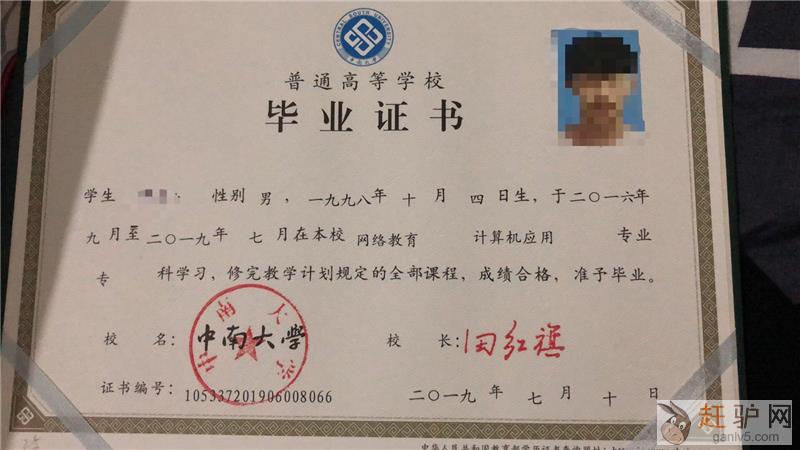 CENTRAL SOUTH UNIVERSITY
中南大学
普通高等学校
毕业证书
学生 性别 男 ，一九九八年 十 月 四 日生，于二〇一六年
九 月至 二〇一九年 七 月在本校 网络教育 计算机应用 专业
专 科学习，修完教学计划规定的全部课程，成绩合格，准予毕业。
校 名：中南大学 校 长：田红旗
中南大学
证书编号：105337201906008066 二〇一九年 七 月 十 日
赶驴网
ganlv5.com
中华人民共和国教育部学历证书查询网址：